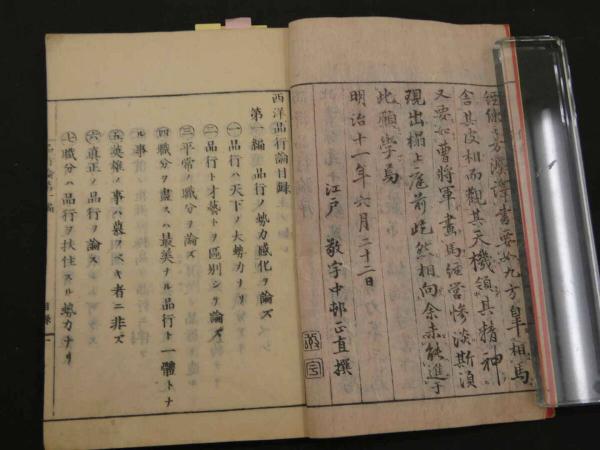 經保方洪譯書要如九方皐相馬
舍其皮相而觀其天機領其精神
又要如曹將軍畫馬經營慘淡斯須
現出榻上庭前屹然相向余未能進于
此願學焉
明治十一年六月二十二日
江戸 敬宇中邨正直撰
西洋品行論目録
第一編 品行ノ勢力感化ヲ論ズ
㊀品行ハ天下ノ大勢力ナリ
㊁品行ト才藝トヲ區別シヲ論ズ
㊂平常ノ職分ヲ論ズ
㊃職分ヲ盡スハ最美ナル品行ト一體トナ
ル事
㊄英雄ノ事ハ慕フベキ者ニ非ズ
㊅眞正ノ品行ヲ論ズ
㊆職分ハ品行ヲ扶住スル勢力ナリ
目録
一